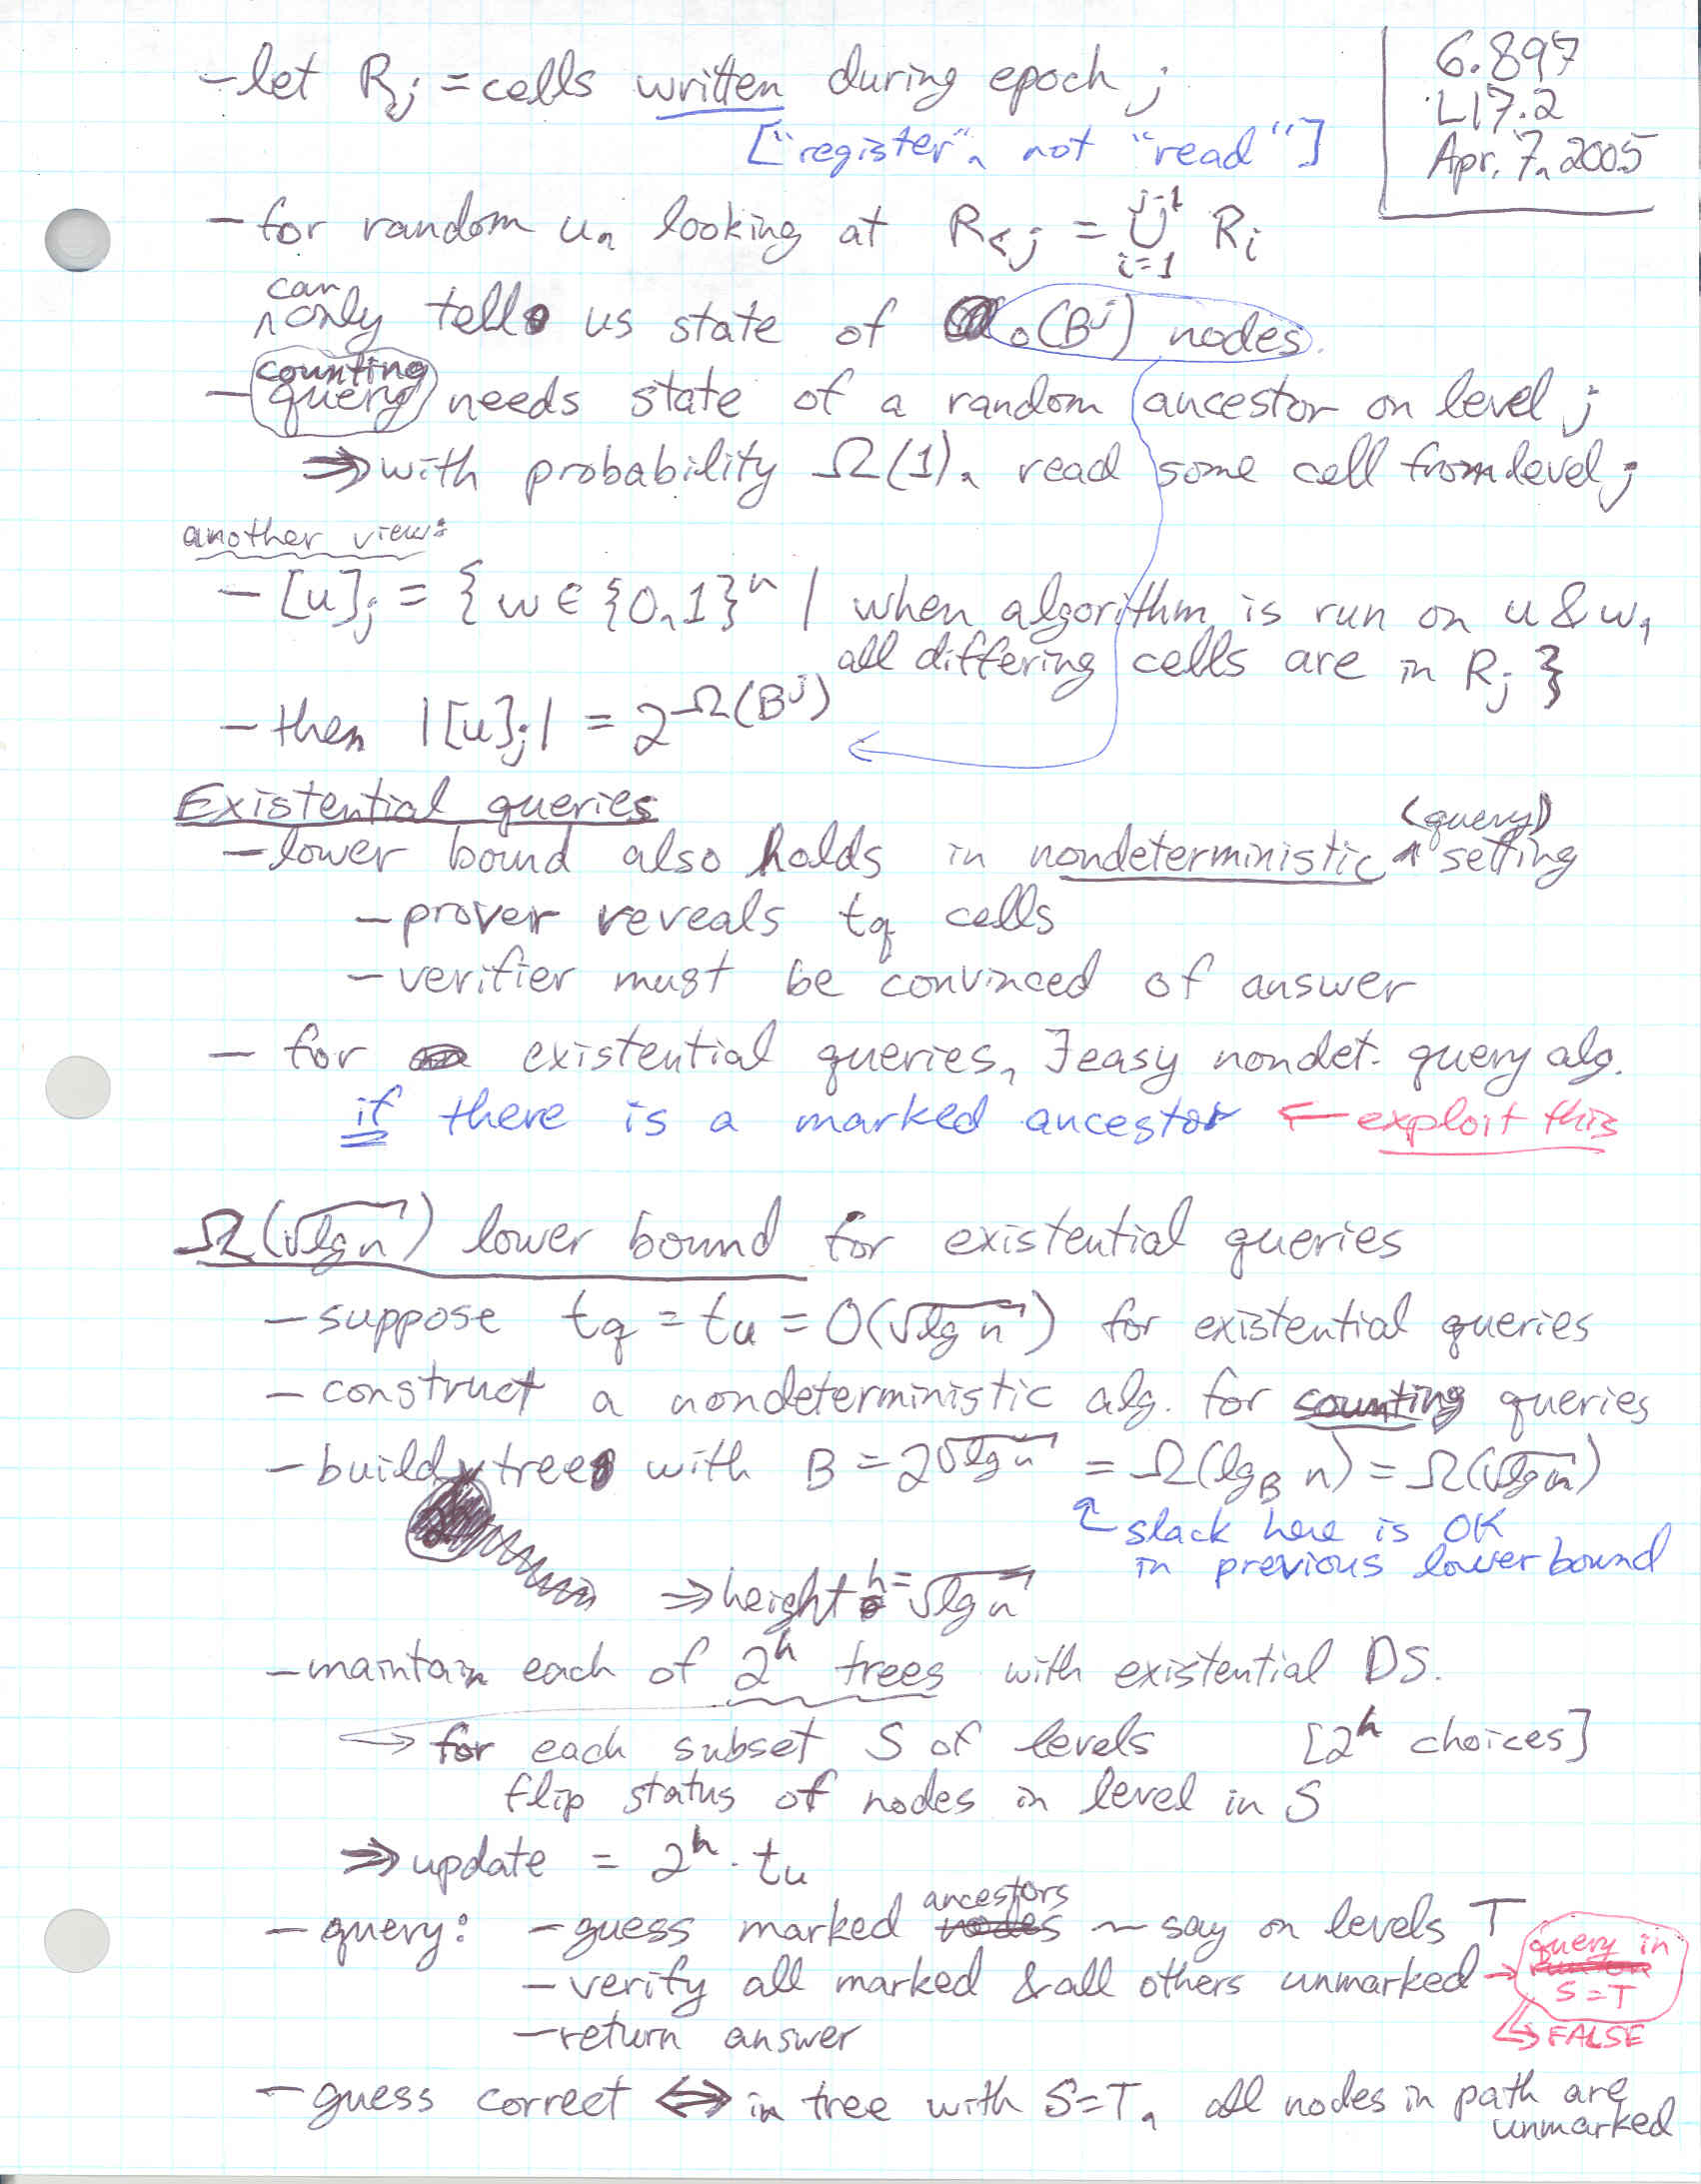 6.897
L17.2
Apr. 7, 2005
– let Rj = cells written during epoch j
["register", not "read"]
– for random u, looking at R<j = ⋃_{i=1}^{j-1} Ri
can only tell us state of o(B^j) nodes.
– counting query needs state of a random ancestor on level j
⇒ with probability Ω(1), read some cell from level j
another view:
– [u]j = { w ∈ {0,1}^n | when algorithm is run on u & w,
all differing cells are in Rj }
– then |[u]j| = 2^Ω(B^j)
Existential queries
– lower bound also holds in nondeterministic (query) setting
– prover reveals tq cells
– verifier must be convinced of answer
– for existential queries, ∃ easy nondet. query alg.
if there is a marked ancestor ← exploit this
Ω(√lg n) lower bound for existential queries
– suppose tq = tu = O(√lg n) for existential queries
– construct a nondeterministic alg. for counting queries
– build trees with B = 2^√lg n = Ω(lg_B n) = Ω(√lg n)
slack here is OK
in previous lower bound
⇒ height h = √lg n
– maintain each of 2^h trees with existential DS.
→ for each subset S of levels [2^h choices]
flip status of nodes in level in S
⇒ update = 2^h · tu
– query: – guess marked ancestors ~ say on levels T
– verify all marked & all others unmarked → query in S=T
→ FALSE
– return answer
– guess correct ⇔ in tree with S=T, all nodes in path are
unmarked